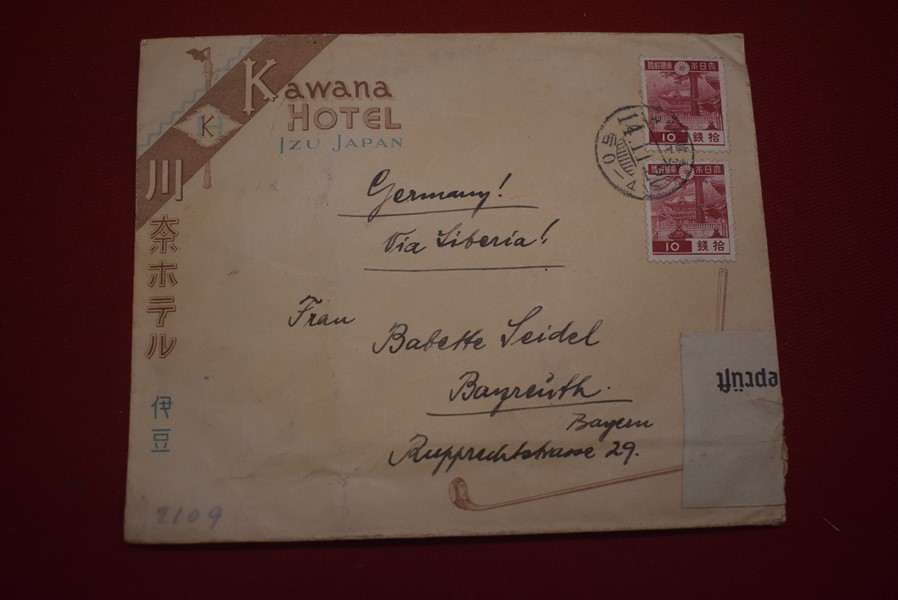 Kawana
HOTEL
IZU JAPAN
K
川奈ホテル
伊豆
Germany!
Via Siberia!
Frau
Babette Seidel
Bayreuth.
Bayern
Rupprechtstrasse 29.
大日本帝國郵便
10 拾銭
大日本帝國郵便
10 拾銭
14.11
后0-4
eprüft
2109